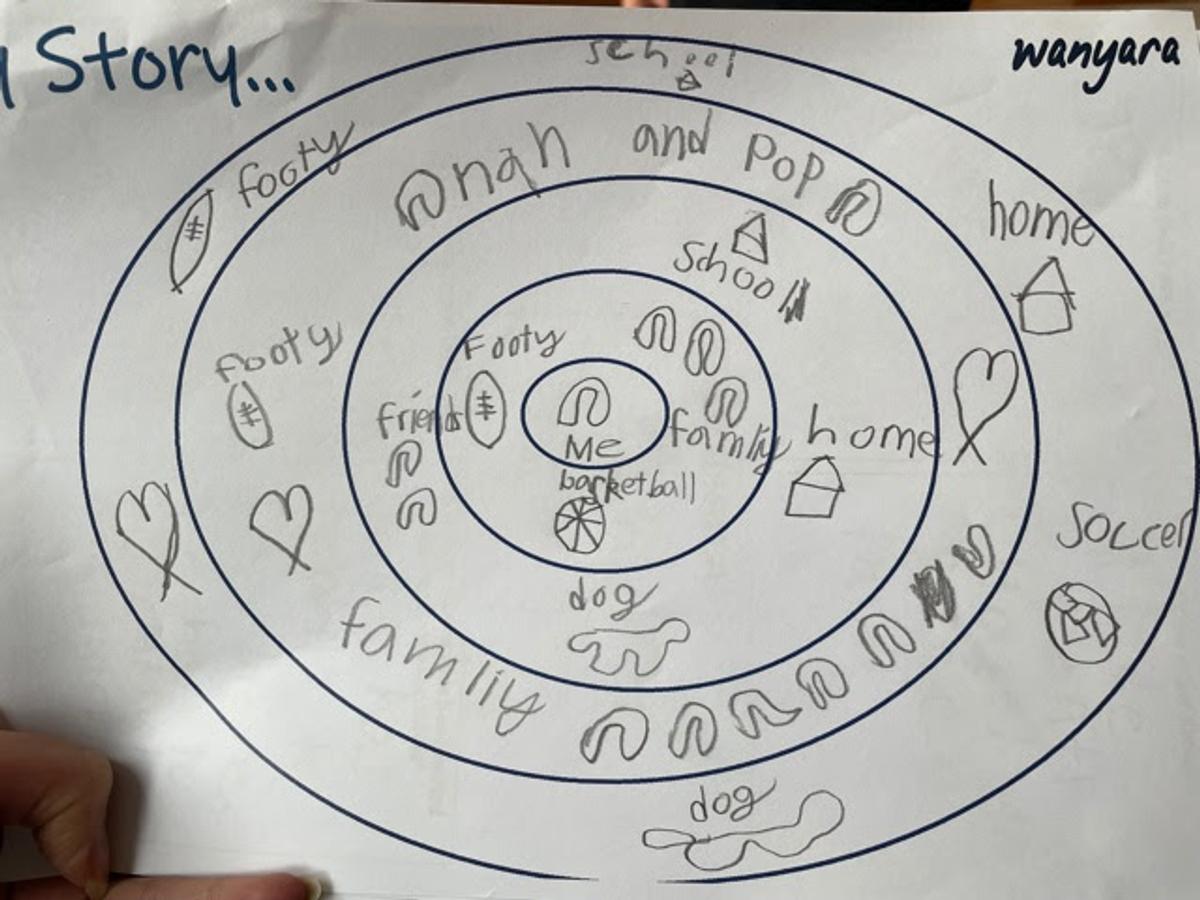 y Story...
wanyara
school
footy
nah and Pop
home
school
Footy
footy
friends
Me
family
home
basketball
soccer
dog
famliy
dog